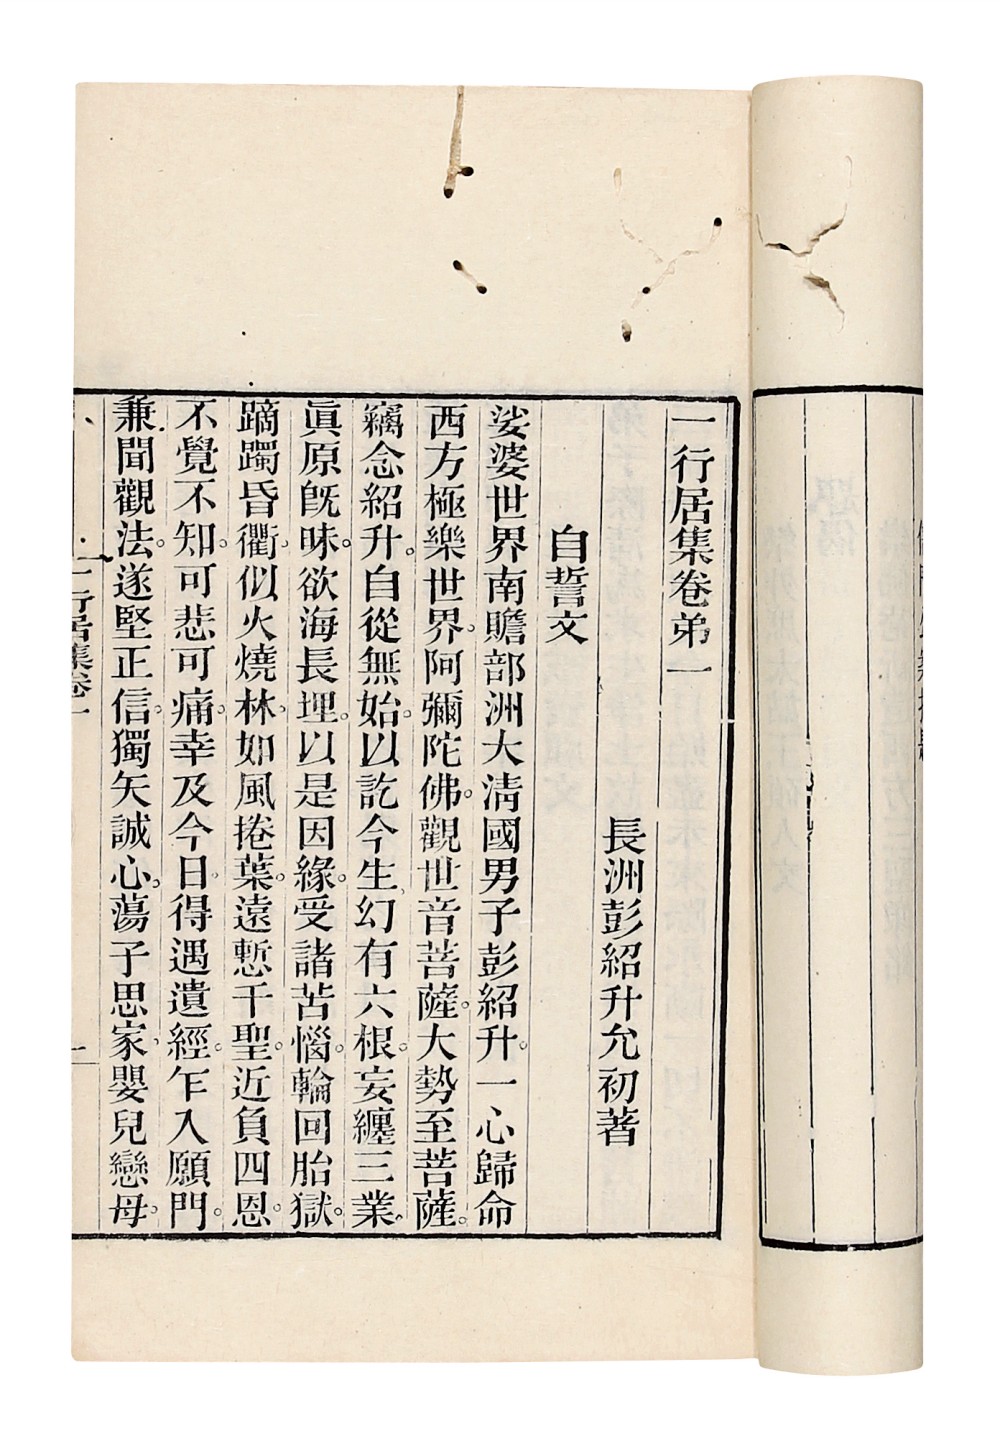 一行居集卷弟一
長洲彭紹升允初著
自誓文
娑婆世界南贍部洲大清國男子彭紹升。一心歸命
西方極樂世界。阿彌陀佛。觀世音菩薩。大勢至菩薩。
竊念紹升。自從無始。以訖今生。幻有六根。妄纏三業。
眞原旣昧。欲海長埋。以是因緣。受諸苦惱。輪回胎獄。
蹢躅昏衢。似火燒林。如風捲葉。遠慙千聖。近負四恩。
不覺不知。可悲可痛。幸及今日。得遇遺經。乍入願門。
兼聞觀法。遂堅正信。獨矢誠心。蕩子思家。嬰兒戀母。
一行居集卷一
一